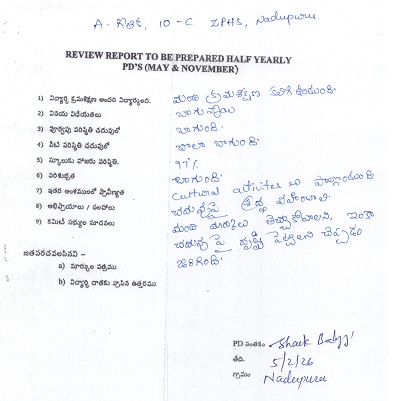 A. గీతిక, 10-C ZPHS, Nadupuru
REVIEW REPORT TO BE PREPARED HALF YEARLY
PD'S (MAY & NOVEMBER)
1) విద్యార్థి క్రమశిక్షణ అందరి విద్యార్థులది. మంచి క్రమశిక్షణ కలిగి ఉంటుంది
2) వినయ విధేయతలు బాగున్నాయి
3) పూర్వపు పరిస్థితి చదువులో బాగుంది.
4) నేటి పరిస్థితి చదువులో చాలా బాగుంది.
5) స్కూలుకు హాజరు పరిస్థితి. 97%
6) పరిశుభ్రత బాగుంది.
7) ఇతర అంశములలో ప్రావీణ్యత Cultural activites లో పాల్గొంటుంది
8) అభిప్రాయాలు / సలహాలు చదువుపై శ్రద్ధ వహించాలి.
9) కమిటీ సభ్యుల సూచనలు మంచి మార్కులు తెచ్చుకోవాలని, ఇంకా
చదువు పై దృష్టి పెట్టాలని చెప్పడం
జరిగింది.
జతపరచవలసినవి –
a) మార్కుల పత్రము
b) విద్యార్థి దాతకు వ్రాసిన ఉత్తరము
PD సంతకం Shaik
తేది. 5/2/26
గ్రామం Nadupuru